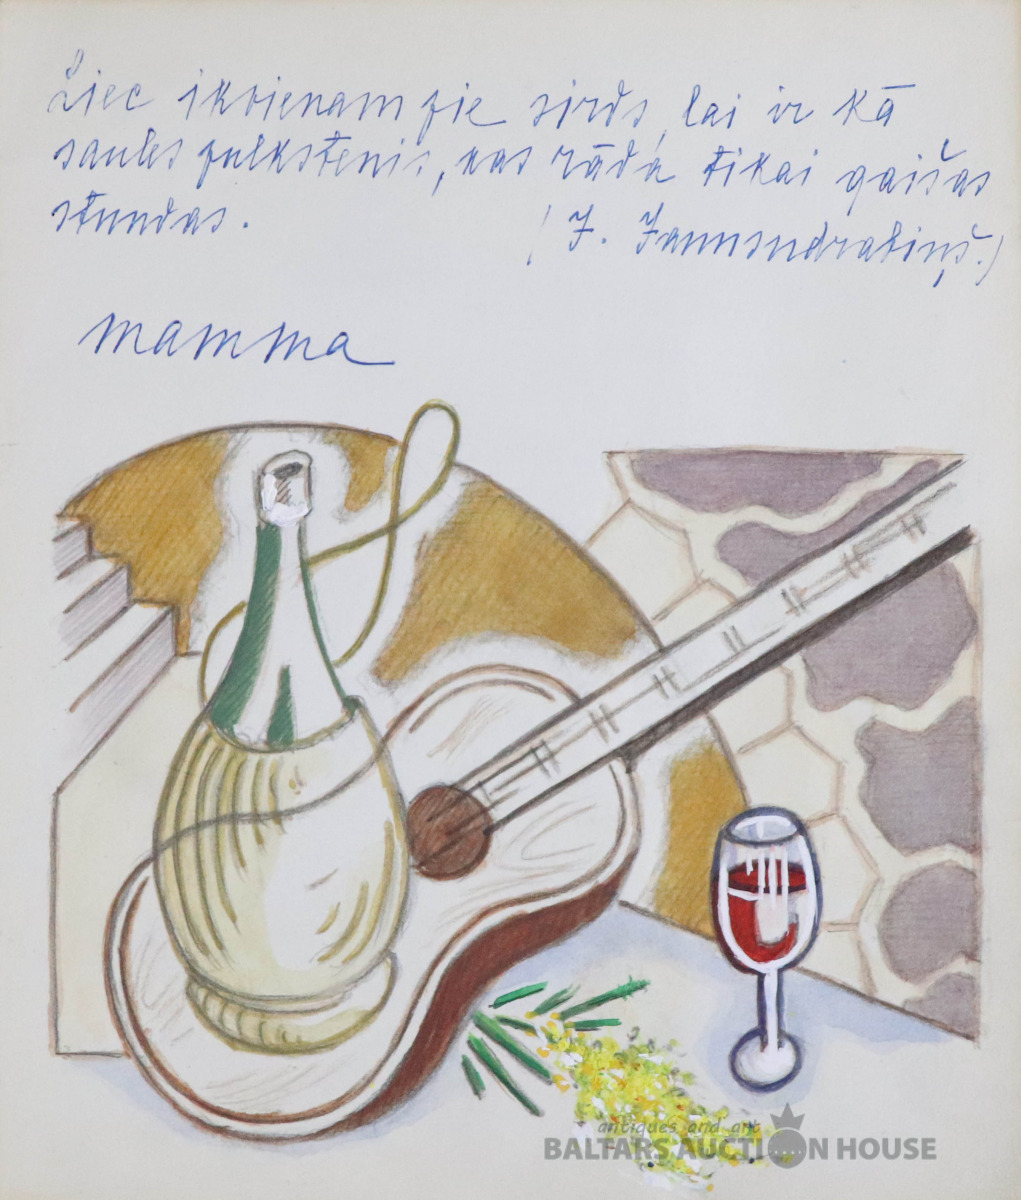 Liec ikvienam pie sirds, lai ir kā
saules pulkstenis, kas rāda tikai gaišas
stundas.
(J. Jaunsudrabiņš.)
mamma
antiques and art
BALTARS AUCTION HOUSE